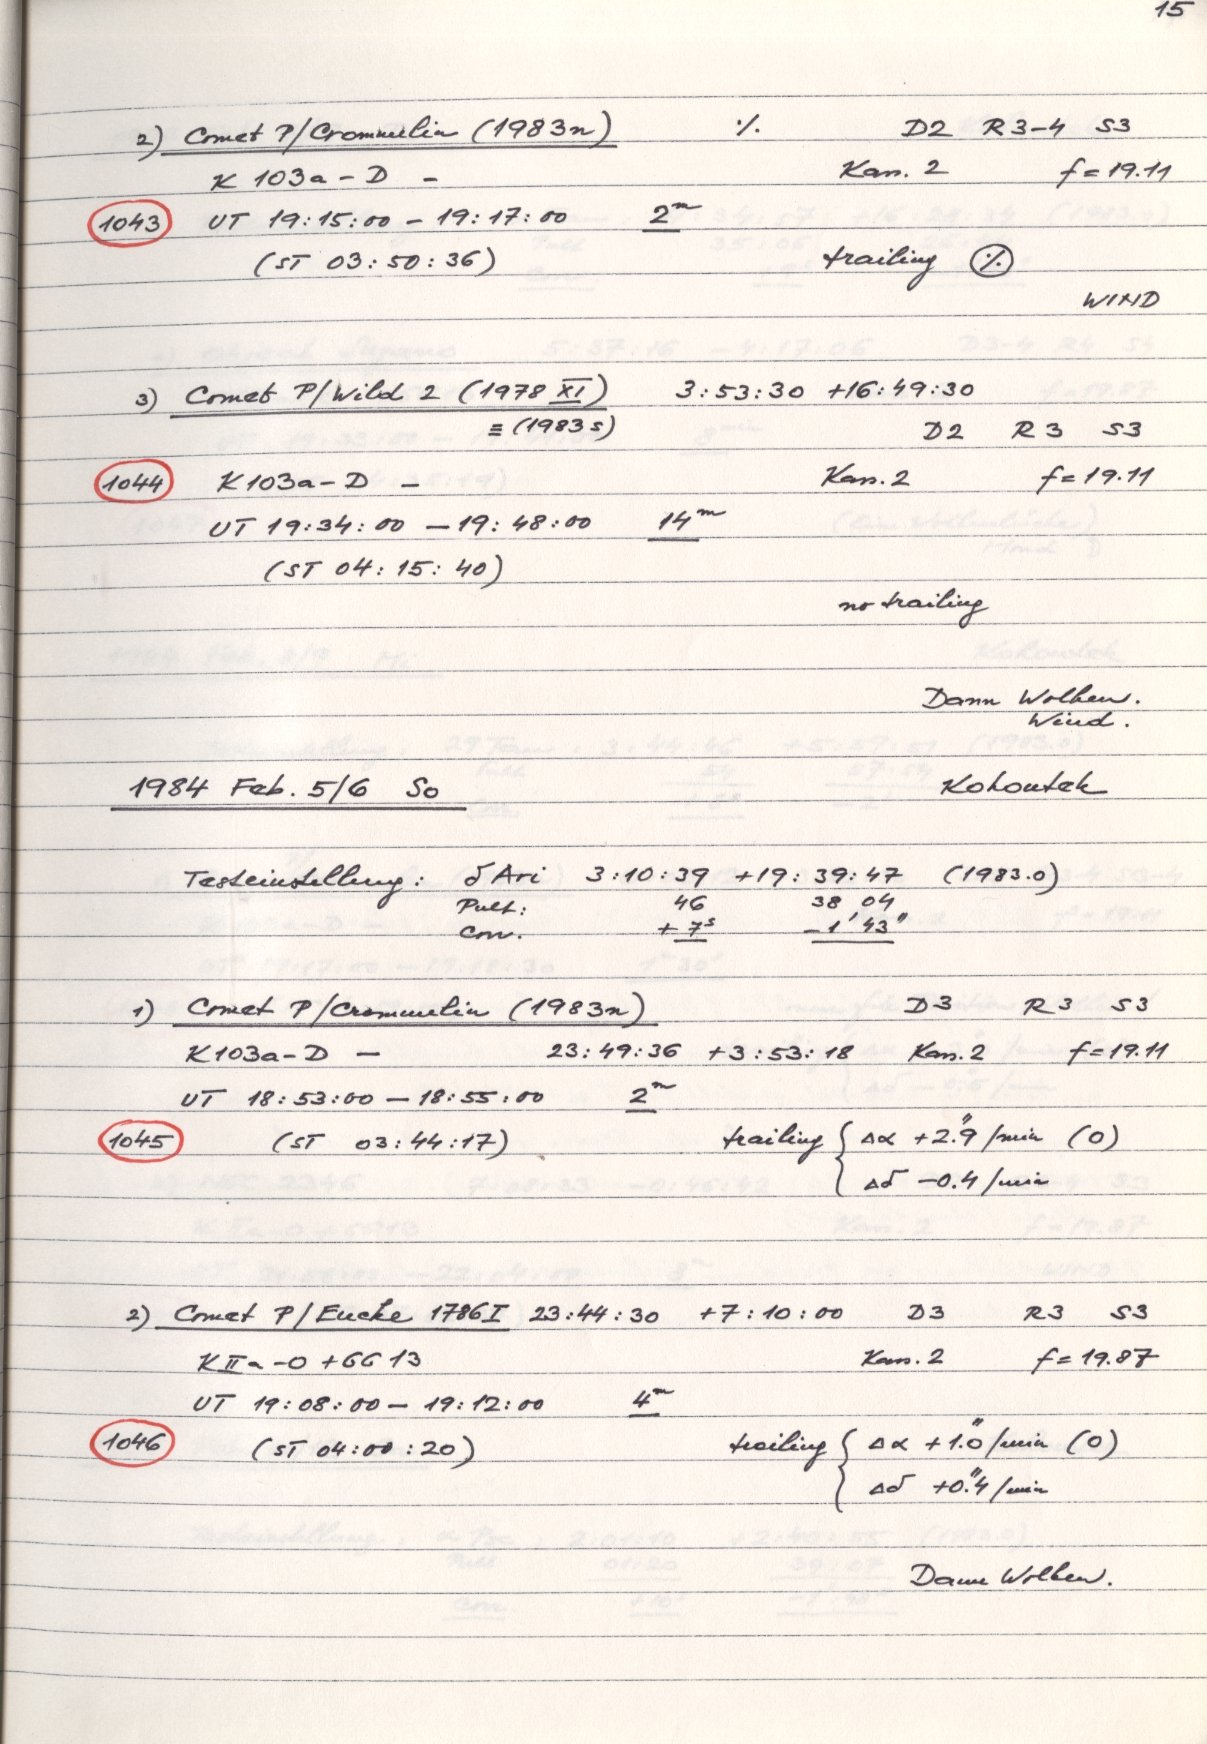 15
2) Comet P/Crommelin (1983n) ٪ D2 R3-4 S3
K 103a-D - Kas. 2 f=19.11
1043 UT 19:15:00 - 19:17:00 2m
(ST 03:50:36) trailing ٪
WIND
3) Comet P/Wild 2 (1978 XI) 3:53:30 +16:49:30
≡ (1983s) D2 R3 S3
1044 K103a-D - Kas. 2 f=19.11
UT 19:34:00 - 19:48:00 14m
(ST 04:15:40)
no trailing
Dann Wolken.
Wind.
1984 Feb. 5/6 So Kohoutek
Testeinstellung: δ Ari 3:10:39 +19:39:47 (1983.0)
Pult: 46 38 04
Corr. +7s -1'43"
1) Comet P/Crommelin (1983n) D3 R3 S3
K103a-D - 23:49:36 +3:53:18 Kas. 2 f=19.11
UT 18:53:00 - 18:55:00 2m
1045 (ST 03:44:17) trailing { Δα +2."9/min (0)
Δδ -0.4/min
2) Comet P/Encke 1786I 23:44:30 +7:10:00 D3 R3 S3
KIIa-O+GG13 Kas. 2 f=19.87
UT 19:08:00 - 19:12:00 4m
1046 (ST 04:00:20) trailing { Δα +1."0/min (0)
Δδ +0."4/min
Dann Wolken.